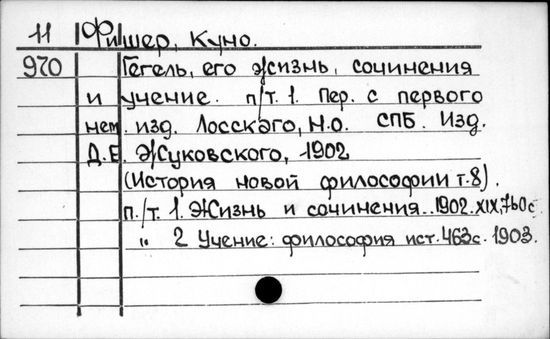 11 Фишер, Куно.
970 Гегель, его жизнь, сочинения
и учение. п/т. 1. Пер. с первого
нем. изд. Лосскаго, Н.О. СПБ. Изд.
Д.Е. Жуковского, 1902
(История новой философии т.8).
п./т. 1. Жизнь и сочинения..1902.XIX,760с
" 2 Учение: философия ист. 463с. 1903.